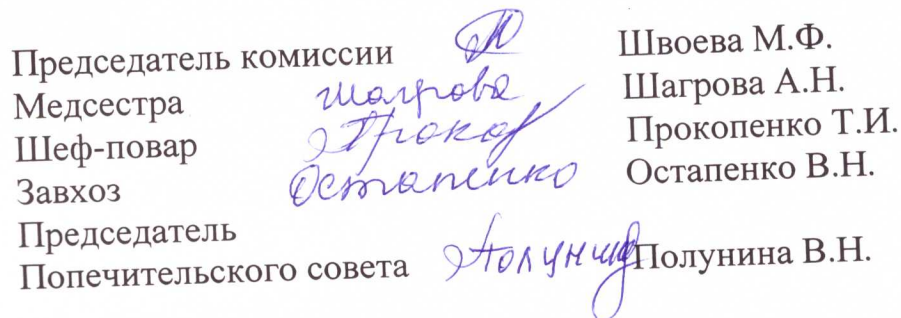 Председатель комиссии Швоева М.Ф.
Медсестра Шагрова Шагрова А.Н.
Шеф-повар Прокоп Шеф-повар Прокопенко Т.И.
Завхоз Остапенко Остапенко В.Н.
Председатель
Попечительского совета Полунина Полунина В.Н.